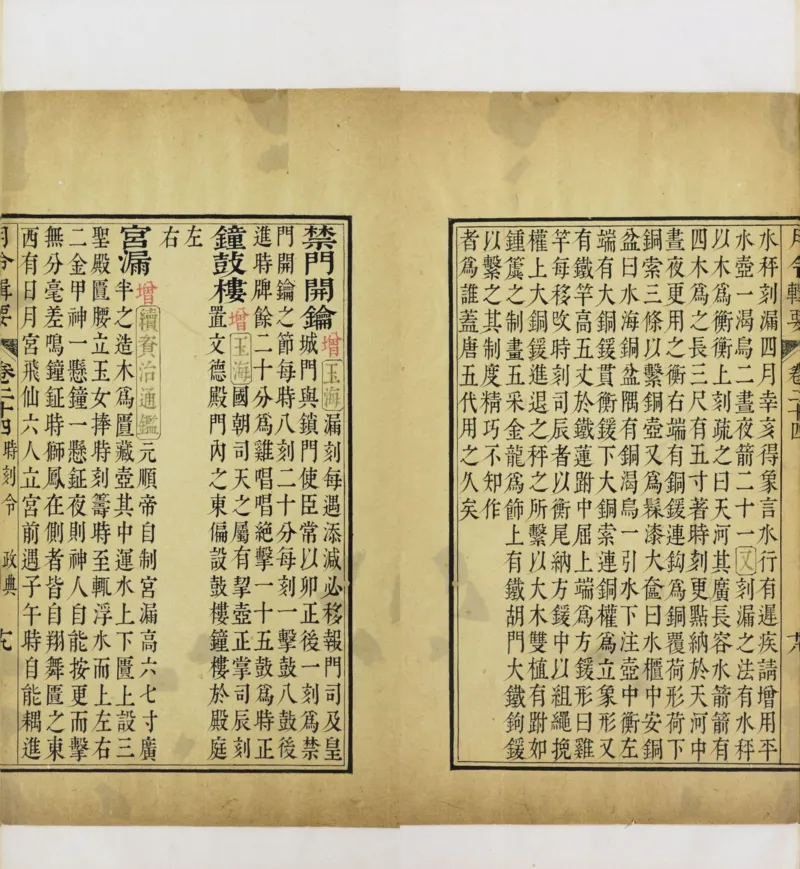 月令輯要 卷二十四
水秤刻漏四月幸亥得象言水行有遲疾請增用平
水壺一渴烏二晝夜箭二十一又刻漏之法有水秤
以木爲衡衡上刻疏之曰天河其廣長容水箭箭有
四木爲之長三尺有五寸著時刻更點納於天河中
晝夜更用之衡右端有銅鍰連鈎爲銅覆荷形荷下
銅索三條以繫銅壺又爲髹漆大奩曰水櫃中安銅
盆曰水海銅盆隅有銅渴烏一引水下注壺中衡左
端有大銅鍰貫衡鍰下大銅索連銅權爲立象形又
有鐵竿高五丈於鐵蓮跗中屈上端爲方鍰形曰雞
竿每移攺時刻司辰者以衡尾納方鍰中以組繩挽
權上大銅鍰進退之秤之所繫以大木雙植有跗如
鍾簴之制畫五采金龍爲飾上有鐵胡門大鐵鉤鍰
以繫之其制度精巧不知作
者爲誰蓋唐五代用之久矣
禁門開鑰增玉海漏刻每遇添減必移報門司及皇
城門與鎖門使臣常以卯正後一刻爲禁
門開鑰之節每時八刻二十分每刻一擊鼓八鼓後
進時牌餘二十分爲雞唱唱絶擊一十五鼓爲時正
鐘鼓樓增玉海國朝司天之屬有挈壺正掌司辰刻
置文德殿門內之東偏設鼓樓鐘樓於殿庭
左
右
宮漏增續資治通鑑元順帝自制宮漏高六七寸廣
半之造木爲匱藏壺其中運水上下匱上設三
聖殿匱腰立玉女捧時刻籌時至輒浮水而上左右
二金甲神一懸鐘一懸鉦夜則神人自能按更而擊
無分毫差鳴鐘鉦時獅鳳在側者皆自翔舞匱之東
西有日月宮飛仙六人立宮前遇子午時自能耦進
月令輯要 卷二十四 時刻令 政典